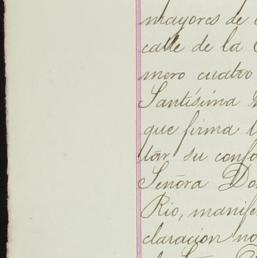 mayores de
calle de la
mero cuatro
Santísima
que firma
tar su confo
Señora Do
Rio, manife
claracion no